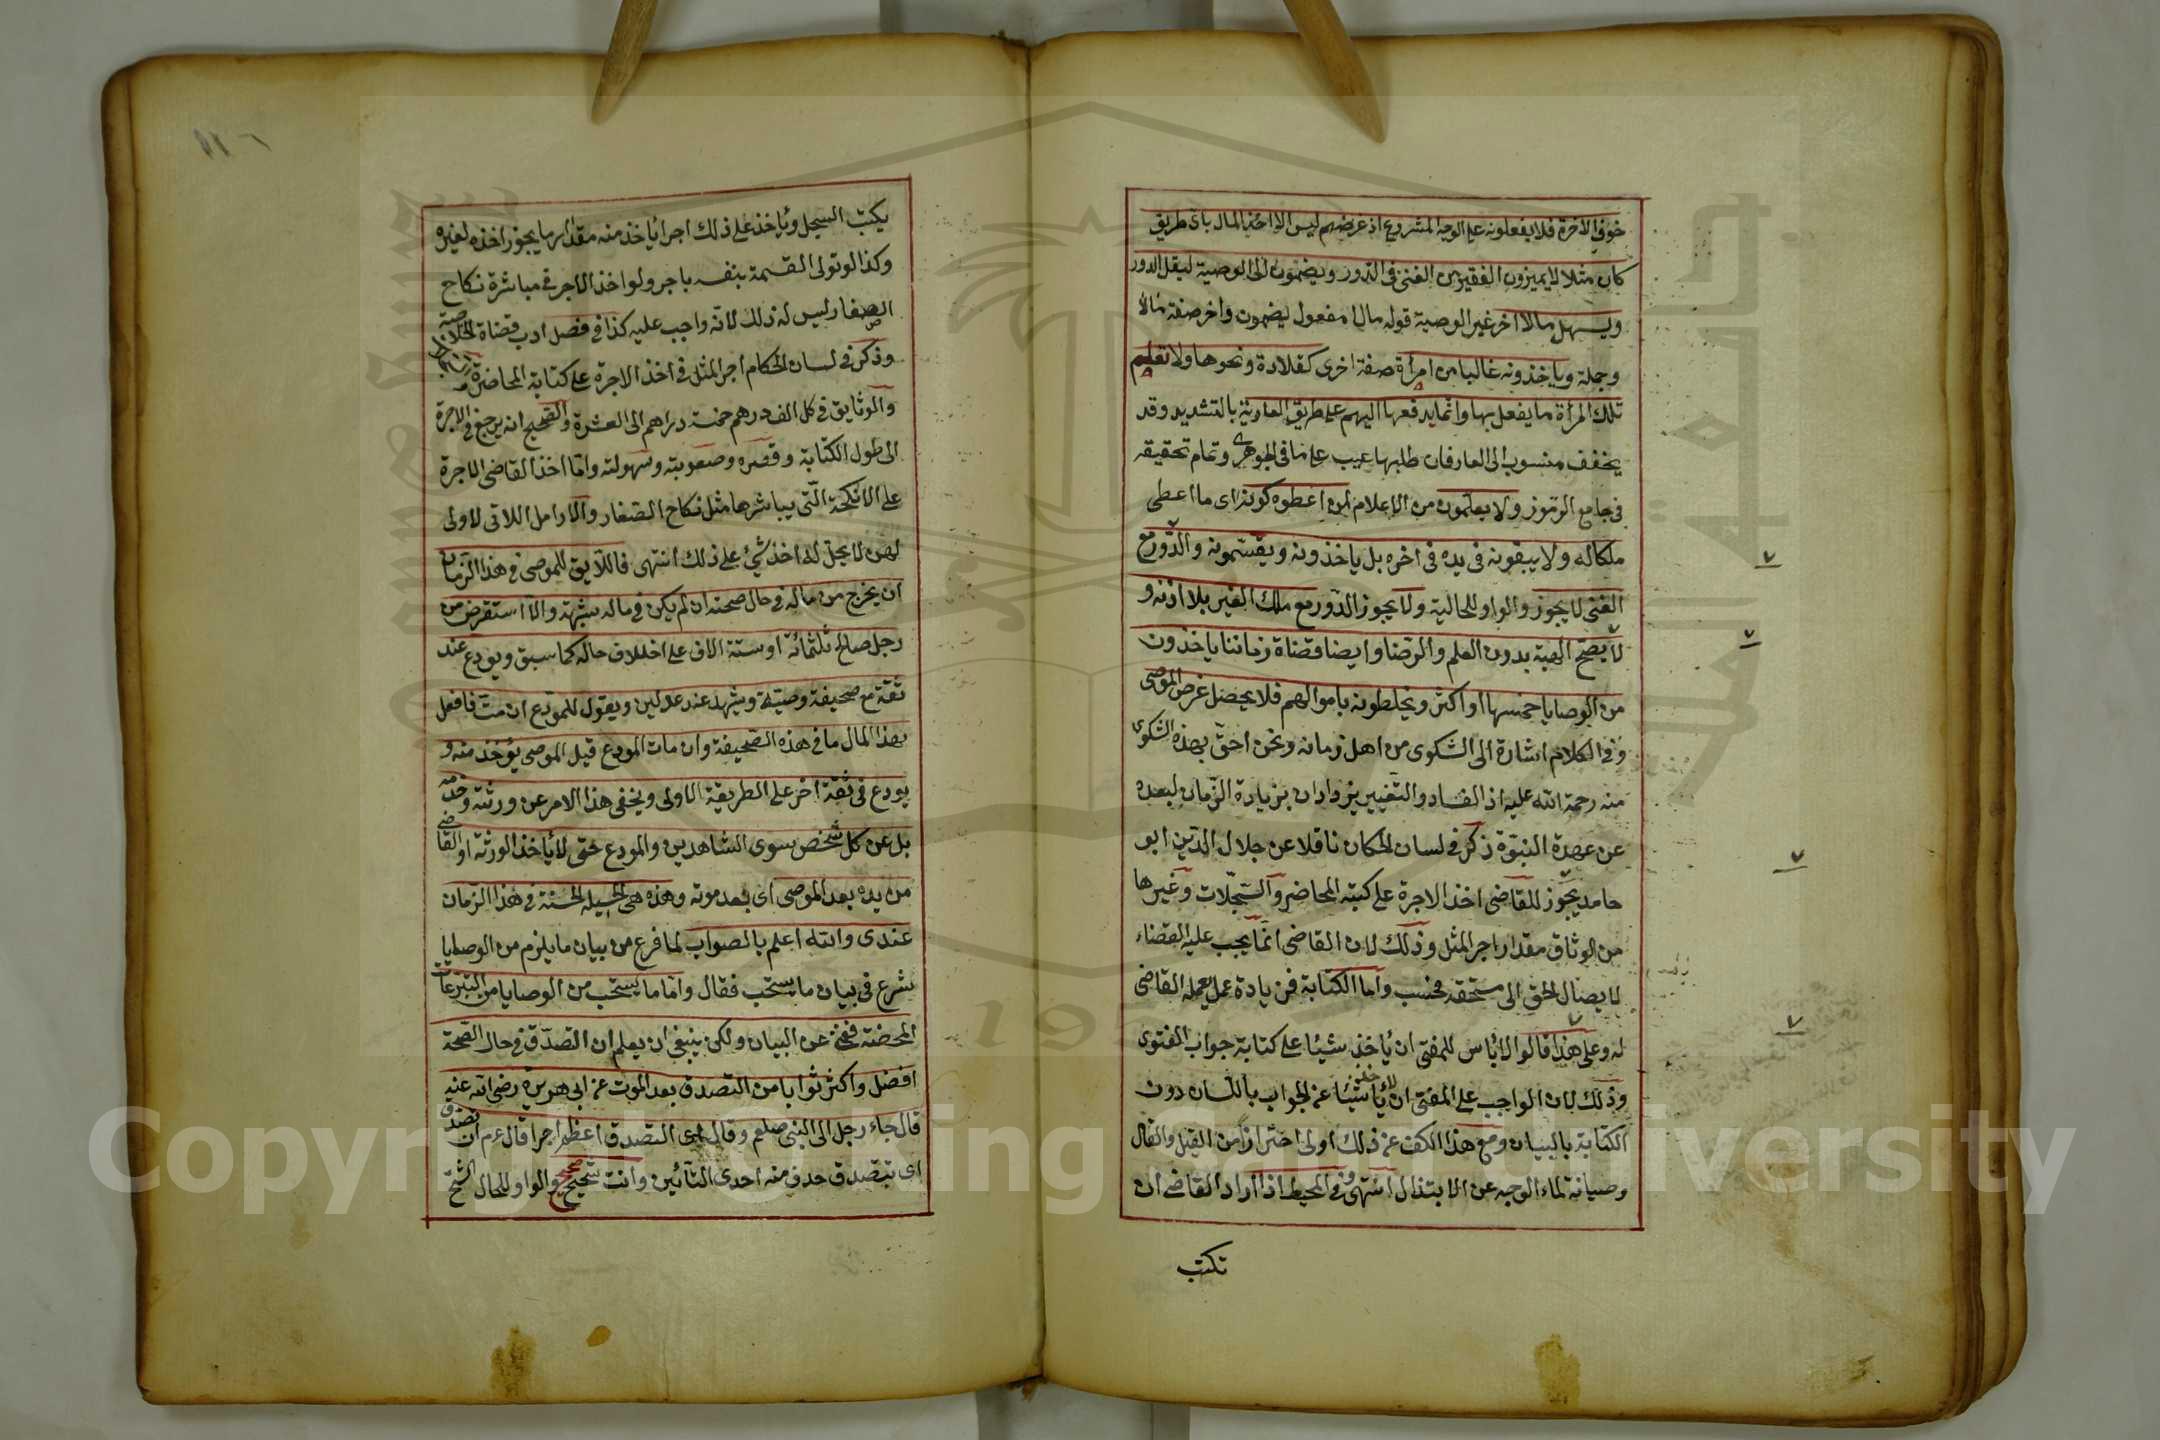 خوف الآخرة فلا يفعلونه على الوجه المشروع اذ غرضهم ليس الا اخذ المال باى طريق
كان مثلا لا يميزون الفقير من الغنى فى الدور ويضمون الى الوصية ليقل الدور
ويسهل مالا اخر غير الوصية قوله مالا مفعول يضمون واخر صفة مالا
وجملة وياخذونه غالبا من امرأة صفة اخرى كقلادة ونحوها ولا تعلم
تلك المرأة ما يفعل بها وانما يدفعها اليهم على طريق العارية بالتشديد وقد
يخفف منسوب الى العار فان طلبها عيب على ما فى الجوهرى وتمام تحقيقه
فى جامع الرموز ولا يعلمون من الاعلام لمن اعطوه كونه اى ما اعطى
ملكا له ولا يبقونه فى يده فى اخره بل ياخذونه ويقسمونه والدور مع
الغنى لا يجوز والواو للحالية ولا يجوز الدور مع ملك الغير بلا اذنه و
لا يصح الهبة بدون العلم والرضا وايضا قضاة زماننا ياخذون
من الوصايا خمسها او اكثر ويخلطونه باموالهم فلا يحصل غرض الموصى
وفى الكلام اشارة الى الشكوى من اهل زمانه ونحن احق بهذه الشكوى
منه رحمة الله عليه اذ الفساد والتغيير يزدادان بزيادة الزمان لبعده
عن عهدة النبوة ذكر فى لسان الحكام ناقلا عن جلال الدين ابو
حامد يجوز للقاضى اخذ الاجرة على كتبه المحاضر والسجلات وغيرها
من الوثاق مقدار اجر المثل وذلك لان القاضى انما يجب عليه القضاء
لايصال الحق الى مستحقه فحسب واما الكتابة فزيادة عمل يعمله القاضى
له وعلى هذا قالوا لا بأس للمفتى ان يأخذ شيئا على كتابة جواب الفتوى
وذلك لان الواجب على المفتى ان لا يأخذ شيئا عن الجواب باللسان دون
الكتابة بالبيان ومع هذا الكف عن ذلك اولى احترازا من القيل والقال
وصيانة لماء الوجه عن الابتذال انتهى وفى المحيط اذا اراد القاضى ان
تكتب
يكتب السجل ويأخذ على ذلك اجرا يأخذ منه مقدار ما يجوز اخذه لغيره
وكذا لو تولى القسمة بنفسه باجر ولو اخذ الاجر فى مباشرة نكاح
الصغار ليس له ذلك لانه واجب عليه كذا فى فصل ادب قضاة الخلاصة
وذكر فى لسان الحكام اجر المثل فى اخذ الاجرة على كتابة المحاضرة
والوثايق فى كل الف درهم خمسة دراهم الى العشرة والصحيح انه يرجع فى الاجرة
الى طول الكتابة وقصره وصعوبته وسهولته واما اخذ القاضى الاجرة
على الانكحة التى يباشرها مثل نكاح الصغار والارامل اللاتى لا ولى
لهن لا يحل له اخذ شئ على ذلك انتهى فاللايق للموصى فى هذا الزمان
ان يخرج من ماله فى حال صحته ان لم يكن فى ماله شبهة والا استقرض من
رجل صالح ثلثمائة او ستة الاف على اختلاف حاله كما سبق ويودع عند
ثقة مع صحيفة وصيته ويشهد عند عدلين ويقول للمودع ان مت فافعل
بهذا المال ما فى هذه الصحيفة وان مات المودع قبل الموصى يؤخذ منه و
يودع فى ثقة اخر على الطريقة الاولى ويخفى هذا الامر عن ورثته وخدمه
بل عن كل شخص سوى الشاهدين والمودع حتى لا يأخذ الورثة او القاضى
من يده بعد الموصى اى بعد موته وهذه هى الحيلة الحسنة فى هذا الزمان
عندى والله اعلم بالصواب لما فرغ من بيان ما يلزم من الوصايا
شرع فى بيان ما يستحب فقال واما ما يستحب من الوصايا من التبرعات
المحضة فغنى عن البيان ولكن ينبغى ان يعلم ان التصدق فى حال الصحة
افضل واكثر ثوابا من التصدق بعد الموت عن ابى هريرة رضى الله عنه
قال جاء رجل الى النبى صلعم وقال اى التصدق اعظم اجرا قال عم ان تصدق
اى تتصدق حذف منه احدى التائين وانت صحيح والواو للحال شحيح
Copyright © King Saud University